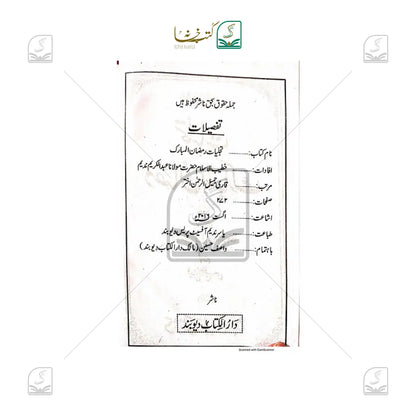 کتب خانہ
جملہ حقوق بحق ناشر محفوظ ہیں
تفصیلات
نام کتاب: تجلیات رمضان المبارک
افادات: خطیب الاسلام حضرت مولانا عبدالکریم ندیم
مرتب: قاری جمیل الرحمٰن اختر
صفحات: ۲۷۲
اشاعت: اگست ۲۰۱۶ء
طباعت: یاسر ندیم آفسیٹ پریس دیوبند
باہتمام: واصف حسین (مالک دارالکتاب دیوبند)
ناشر
دَارُ الکِتَاب دیوبَند
Scanned with CamScanner